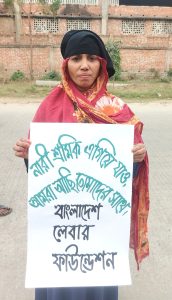 নারী শ্রমিক এগিয়ে যাও,
আমরা আছি তোমাদের সাথে
বাংলাদেশ
লেবার
ফাউন্ডেশন